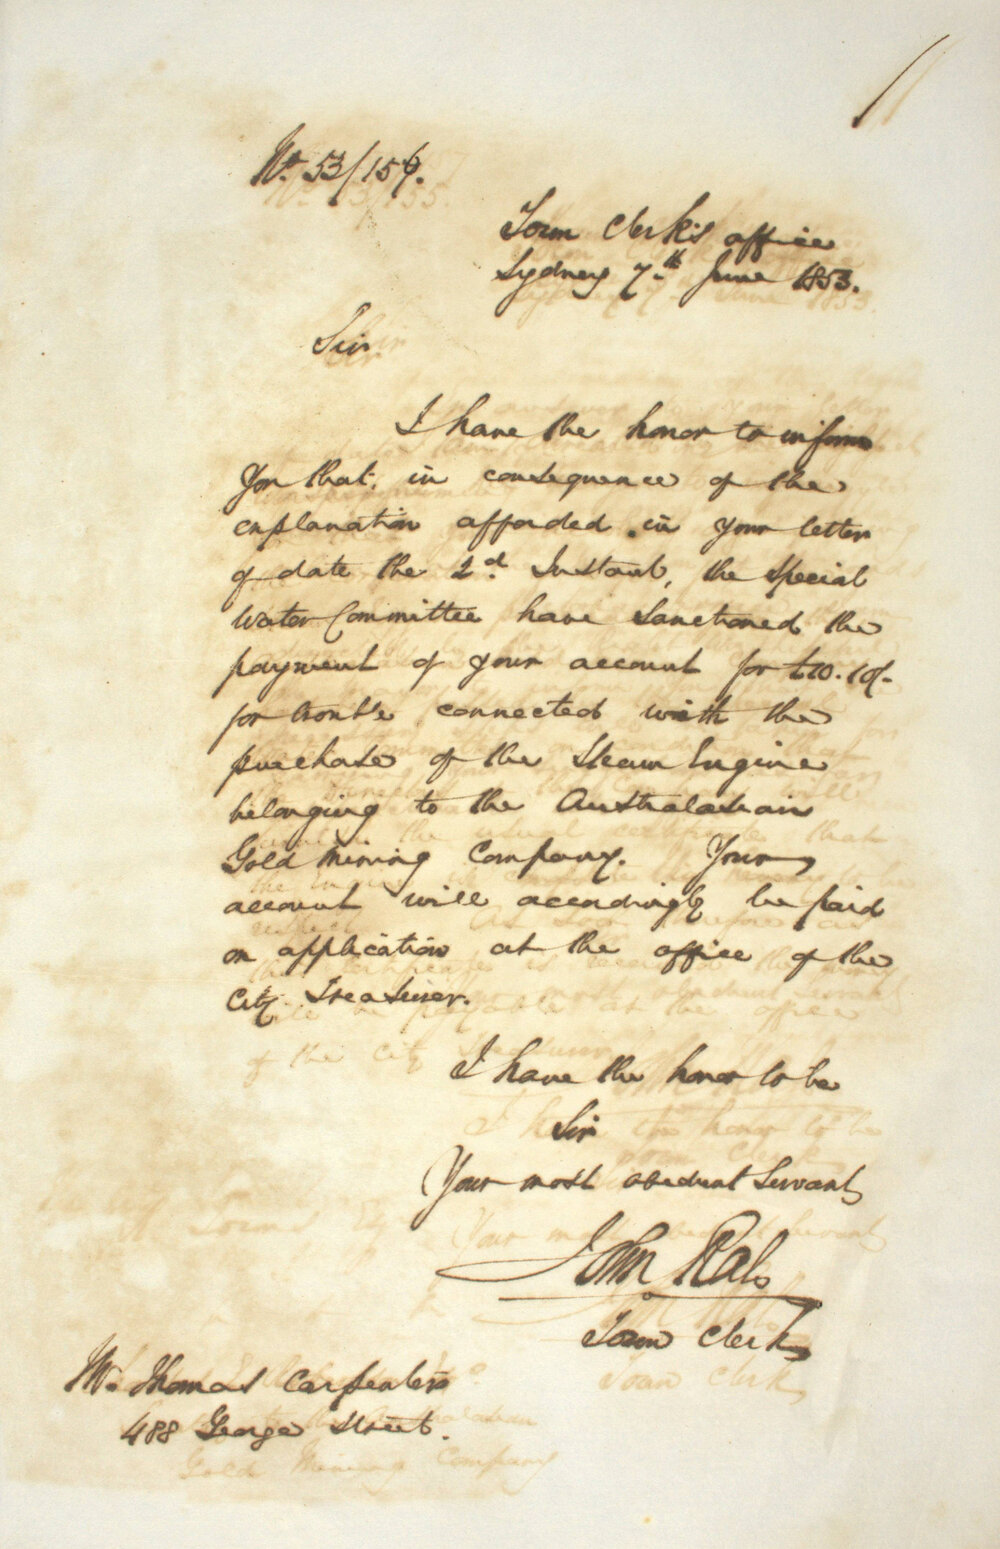 No. 53/156.
Town Clerk's office
Sydney 7th June 1853.
Sir
I have the honor to inform
you that, in consequence of the
explanation afforded in your letter
of date the 2d. Instant, the Special
Water Committee have sanctioned the
payment of your account for £10.10/-
for trouble connected with the
purchase of the Steam Engine
belonging to the Australasian
Gold Mining Company. Your
account will accordingly be paid
on application at the office of the
City Treasurer.
I have the honor to be
Sir
Your most obedient Servant
John Rae
Town Clerk
Mr. Thomas Carpenter
488 George Street.